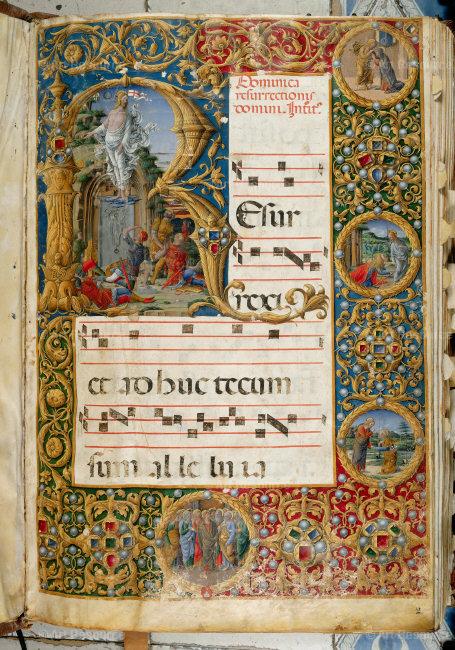 Dominica
resurrectionis
domini.
REsur
rexi
et ad huc tecum
sum al le lu ia
2